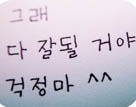 그래
다 잘될 거야
걱정마 ^^